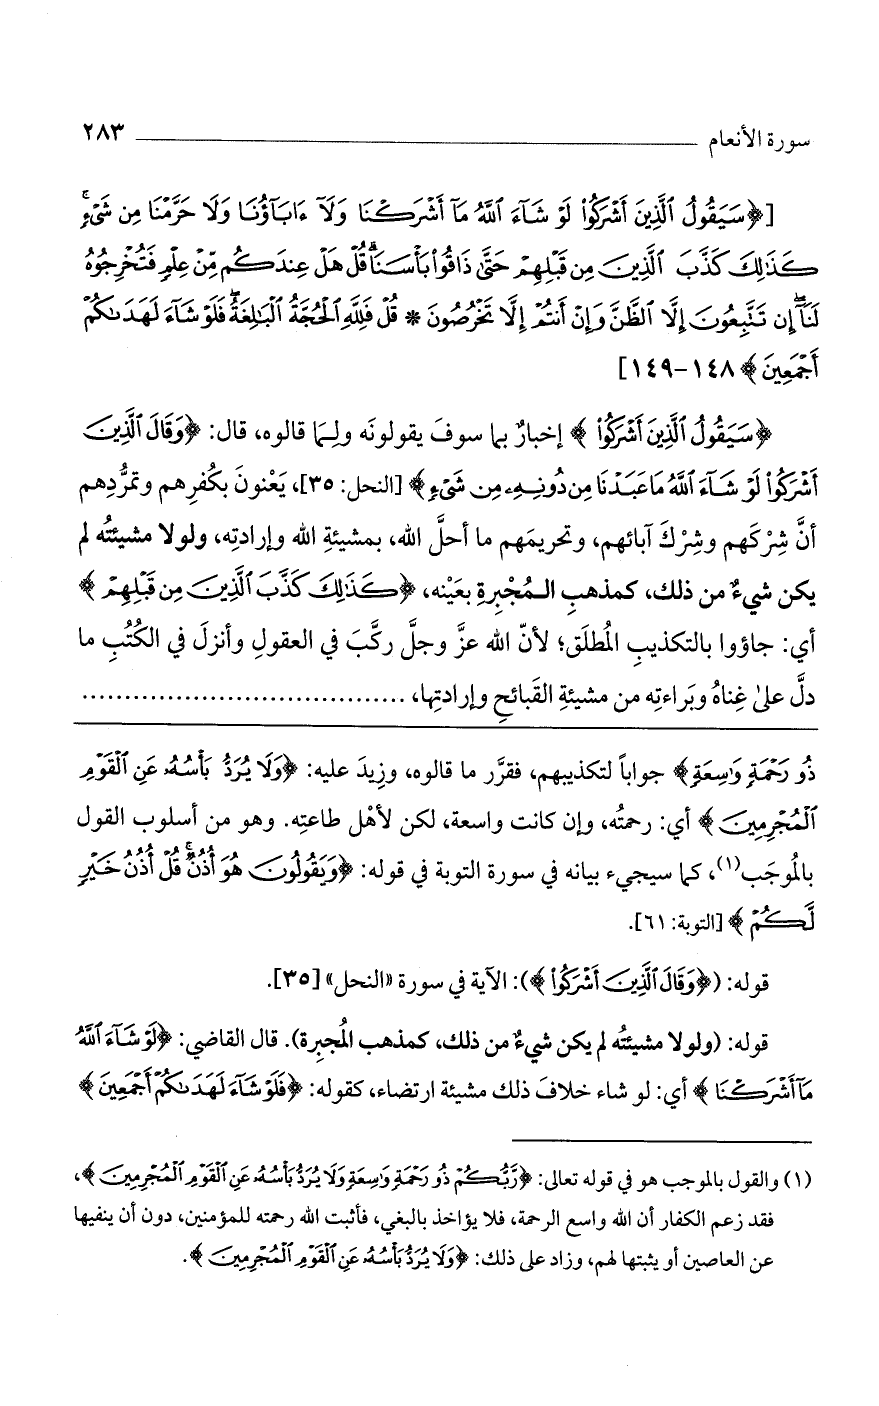 سورة الأنعام ٢٨٣
[﴿سَيَقُولُ ٱلَّذِينَ أَشْرَكُوا۟ لَوْ شَآءَ ٱللَّهُ مَآ أَشْرَكْنَا وَلَآ ءَابَآؤُنَا وَلَا حَرَّمْنَا مِن شَىْءٍ ۚ
كَذَٰلِكَ كَذَّبَ ٱلَّذِينَ مِن قَبْلِهِمْ حَتَّىٰ ذَاقُوا۟ بَأْسَنَا ۗ قُلْ هَلْ عِندَكُم مِّنْ عِلْمٍ فَتُخْرِجُوهُ
لَنَآ ۖ إِن تَتَّبِعُونَ إِلَّا ٱلظَّنَّ وَإِنْ أَنتُمْ إِلَّا تَخْرُصُونَ * قُلْ فَلِلَّهِ ٱلْحُجَّةُ ٱلْبَٰلِغَةُ ۖ فَلَوْ شَآءَ لَهَدَىٰكُمْ
أَجْمَعِينَ﴾ ١٤٨-١٤٩]
﴿سَيَقُولُ ٱلَّذِينَ أَشْرَكُوا۟﴾ إخبارٌ بما سوفَ يقولونَه ولِمَا قالوه، قال: ﴿وَقَالَ ٱلَّذِينَ
أَشْرَكُوا۟ لَوْ شَآءَ ٱللَّهُ مَا عَبَدْنَا مِن دُونِهِۦ مِن شَىْءٍ﴾ [النحل: ٣٥]، يَعْنونَ بكُفرِهم وتمرُّدِهم
أنَّ شِرْكَهم وشِرْكَ آبائهم، وتحريمَهم ما أحلَّ الله، بمشيئةِ الله وإرادتِه، ولولا مشيئتُه لم
يكن شيءٌ من ذلك، كمذهبِ المُجْبِرةِ بعَيْنه، ﴿كَذَٰلِكَ كَذَّبَ ٱلَّذِينَ مِن قَبْلِهِمْ﴾
أي: جاؤوا بالتكذيبِ المُطلَق؛ لأنّ الله عزَّ وجلَّ ركَّبَ في العقولِ وأنزلَ في الكُتُبِ ما
دلَّ علىٰ غِناهُ وبَراءتِه من مشيئةِ القَبائحِ وإرادتِها، ......................................
ذُو رَحْمَةٍ وَٰسِعَةٍ﴾ جواباً لتكذيبهم، فقرَّر ما قالوه، وزِيدَ عليه: ﴿وَلَا يُرَدُّ بَأْسُهُۥ عَنِ ٱلْقَوْمِ
ٱلْمُجْرِمِينَ﴾ أي: رحمتُه، وإن كانت واسعة، لكن لأهْل طاعتِه. وهو من أسلوب القول
بالمُوجَب(١)، كما سيجيء بيانه في سورة التوبة في قوله: ﴿وَيَقُولُونَ هُوَ أُذُنٌ ۚ قُلْ أُذُنُ خَيْرٍ
لَّكُمْ﴾ [التوبة: ٦١].
قوله: (﴿وَقَالَ ٱلَّذِينَ أَشْرَكُوا۟﴾): الآية في سورة «النحل» [٣٥].
قوله: (ولولا مشيئتُه لم يكن شيءٌ من ذلك، كمذهب المُجبِرة). قال القاضي: ﴿لَوْ شَآءَ ٱللَّهُ
مَآ أَشْرَكْنَا﴾ أي: لو شاء خلافَ ذلك مشيئة ارتضاء، كقوله: ﴿فَلَوْ شَآءَ لَهَدَىٰكُمْ أَجْمَعِينَ﴾
(١) والقول بالموجب هو في قوله تعالى: ﴿رَّبُّكُمْ ذُو رَحْمَةٍ وَٰسِعَةٍ وَلَا يُرَدُّ بَأْسُهُۥ عَنِ ٱلْقَوْمِ ٱلْمُجْرِمِينَ﴾،
فقد زعم الكفار أن الله واسع الرحمة، فلا يؤاخذ بالبغي، فأثبت الله رحمته للمؤمنين، دون أن ينفيها
عن العاصين أو يثبتها لهم، وزاد على ذلك: ﴿وَلَا يُرَدُّ بَأْسُهُۥ عَنِ ٱلْقَوْمِ ٱلْمُجْرِمِينَ﴾.